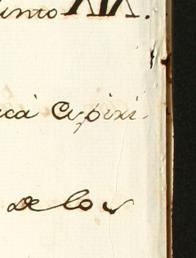 into XIX.
ica Cypixi-
de los